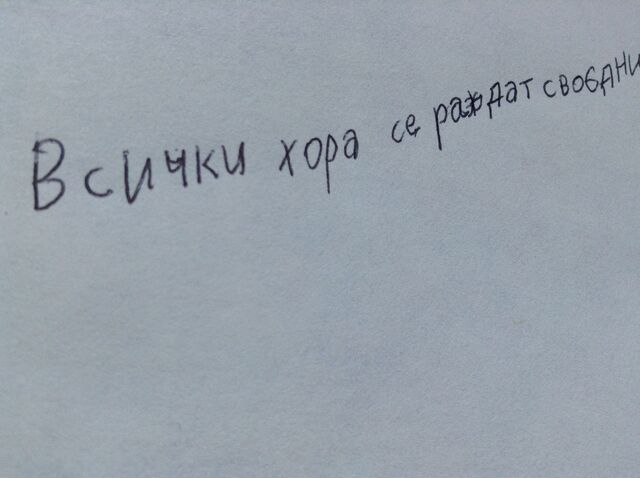 Всички хора се раждат свобдни